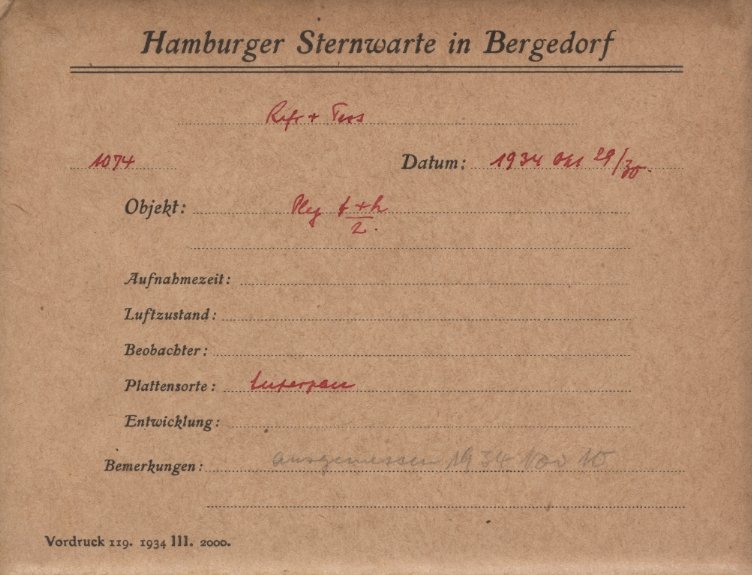 Hamburger Sternwarte in Bergedorf
Refr + Tess
1074 Datum: 1934 Okt 29/30.
Objekt: Plej f + h
2.
Aufnahmezeit:
Luftzustand:
Beobachter:
Plattensorte: Superpan
Entwicklung:
Bemerkungen: ausgemessen 1934 Nov 10
Vordruck 119. 1934 III. 2000.